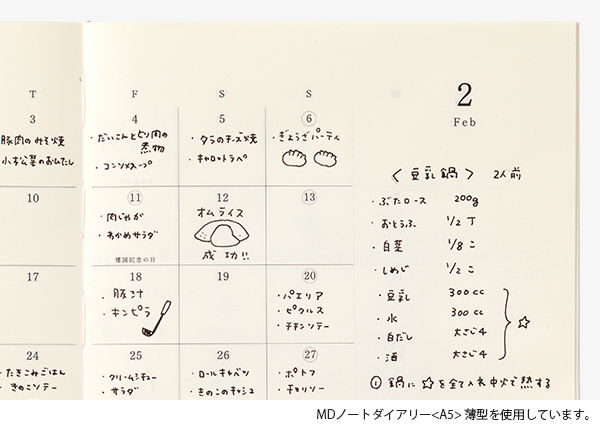 T
F
S
S
2
Feb
3
豚肉のみそ焼
小松菜のおひたし
4
・だいこんととり肉の
煮物
・コンソメスープ
5
・タラのチーズ焼
・キャロットラペ
6
・ぎょうざパーティ
10
11
・肉じゃが
・わかめサラダ
建国記念の日
12
オムライス
成功!!
13
17
18
・豚汁
・キンピラ
19
20
・パエリア
・ピクルス
・チキンソテー
24
・たきこみごはん
・きのこソテー
25
・クリームシチュー
・サラダ
26
・ロールキャベツ
・きのこのキッシュ
27
・ポトフ
・チョリソー
〈豆乳鍋〉 2人前
・ぶたロース 200g
・おとうふ 1/2丁
・白菜 1/8コ
・しめじ 1/2コ
・豆乳 300cc
・水 300cc
・白だし 大さじ4
・酒 大さじ4
☆
① 鍋に☆を全て入れ中火で熱する
MDノートダイアリー<A5> 薄型を使用しています。